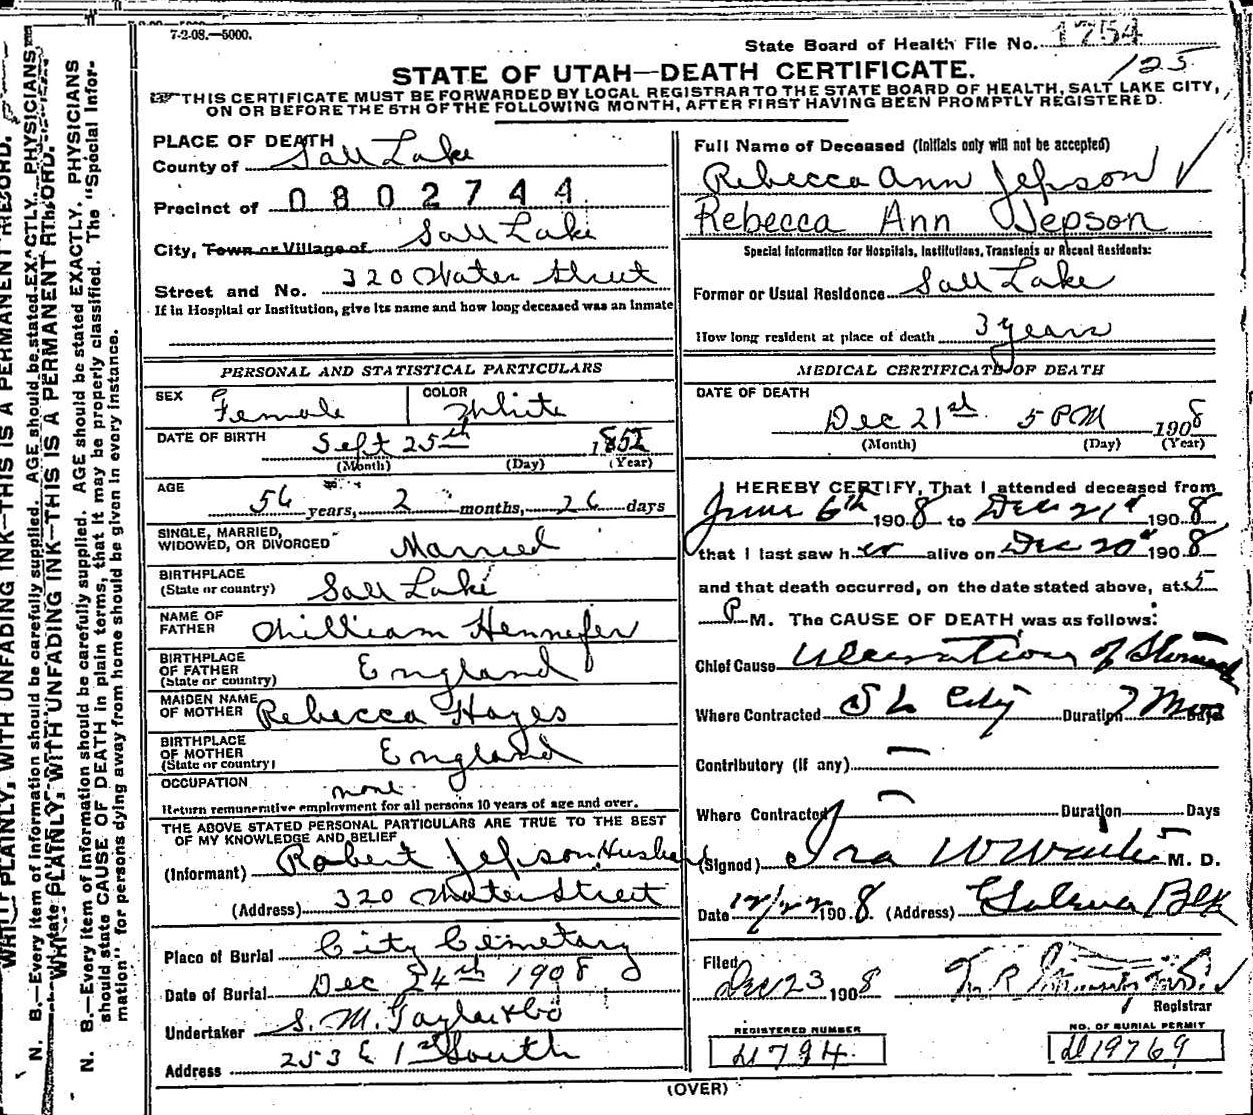 7-2-08.—5000.
State Board of Health File No. 1754
125
STATE OF UTAH—DEATH CERTIFICATE.
THIS CERTIFICATE MUST BE FORWARDED BY LOCAL REGISTRAR TO THE STATE BOARD OF HEALTH, SALT LAKE CITY,
ON OR BEFORE THE 5TH OF THE FOLLOWING MONTH, AFTER FIRST HAVING BEEN PROMPTLY REGISTERED.
PLACE OF DEATH
County of Salt Lake
Precinct of 0802744
City, Town or Village of Salt Lake
Street and No. 320 Water Street
If in Hospital or Institution, give its name and how long deceased was an inmate
Full Name of Deceased (Initials only will not be accepted)
Rebecca Ann Jepson
Rebecca Ann Jepson
Special Information for Hospitals, Institutions, Transients or Recent Residents:
Former or Usual Residence Salt Lake
How long resident at place of death 3 years
PERSONAL AND STATISTICAL PARTICULARS
SEX Female COLOR White
DATE OF BIRTH Sept 25th 1852
(Month) (Day) (Year)
AGE 56 years, 2 months, 26 days
SINGLE, MARRIED,
WIDOWED, OR DIVORCED Married
BIRTHPLACE
(State or country) Salt Lake
NAME OF
FATHER William Hennefer
BIRTHPLACE
OF FATHER
(State or country) England
MAIDEN NAME
OF MOTHER Rebecca Hayes
BIRTHPLACE
OF MOTHER
(State or country) England
OCCUPATION none
Return remunerative employment for all persons 10 years of age and over.
THE ABOVE STATED PERSONAL PARTICULARS ARE TRUE TO THE BEST
OF MY KNOWLEDGE AND BELIEF
(Informant) Robert Jepson Husban
(Address) 320 Water Street
Place of Burial City Cemetary
Date of Burial Dec 24th 1908
Undertaker S. M. Taylor & Co
Address 253 E 1st South
MEDICAL CERTIFICATE OF DEATH
DATE OF DEATH
Dec 21st 5 PM 1908
(Month) (Day) (Year)
I HEREBY CERTIFY, That I attended deceased from
June 6th 1908 to Dec 21st 1908
that I last saw her alive on Dec 20th 1908
and that death occurred, on the date stated above, at 5
P M. The CAUSE OF DEATH was as follows:
Chief Cause Ulceration of Stomach
Where Contracted S L City Duration 7 Mos Days
Contributory (if any) —
Where Contracted — Duration Days
(Signed) Ira W M. D.
Date 12/22 1908 (Address) Blk
Filed
Dec 23 1908
Registrar
REGISTERED NUMBER
D1794
NO. OF BURIAL PERMIT
D19769
(OVER)
WRITE PLAINLY, WITH UNFADING INK—THIS IS A PERMANENT RECORD.
N. B.—Every item of information should be carefully supplied. AGE should be stated EXACTLY. PHYSICIANS
WRITE PLAINLY, WITH UNFADING INK—THIS IS A PERMANENT RECORD.
N. B.—Every item of information should be carefully supplied. AGE should be stated EXACTLY. PHYSICIANS
should state CAUSE OF DEATH in plain terms, that it may be properly classified. The "Special Infor-
mation" for persons dying away from home should be given in every instance.